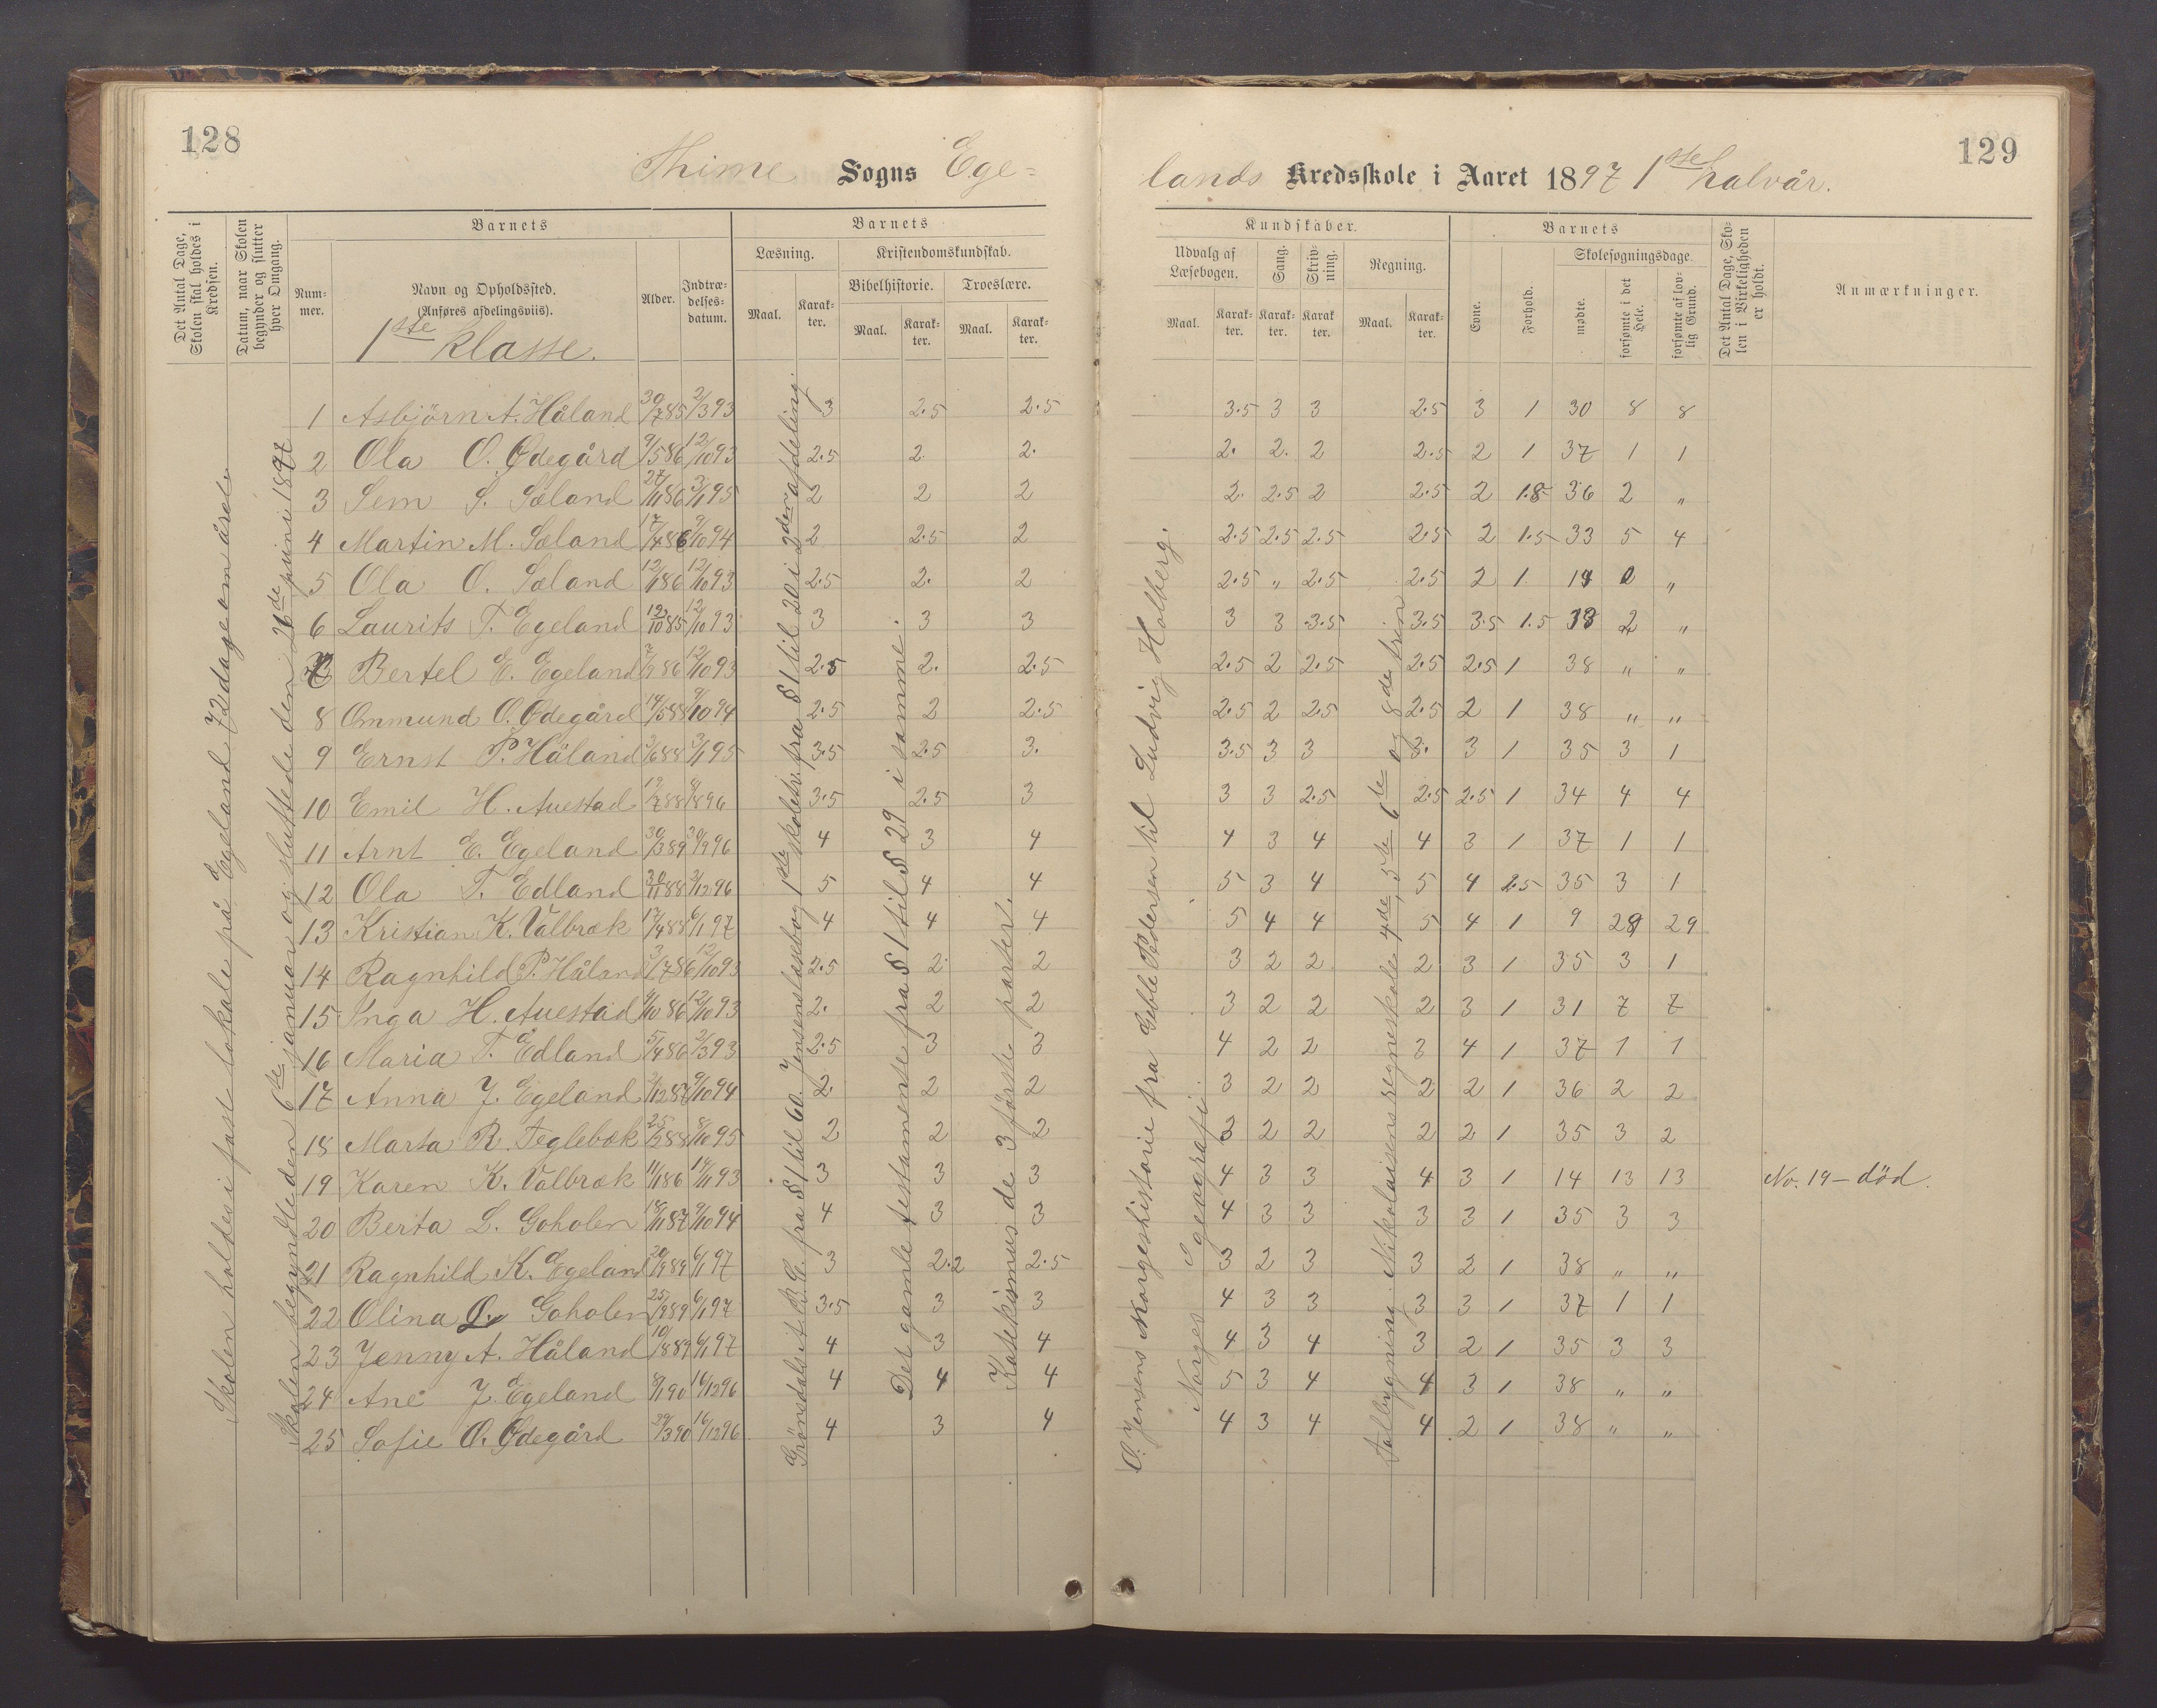 128
129
Thime Sogns Ege-
lands Kredsskole i Aaret 1897 1ste halvår.
Det Antal Dage, Skolen skal holdes i Kredsen.
Datum, naar Skolen begynder og slutter hver Omgang.
Barnets
Num-mer.
Navn og Opholdssted.
(Anføres afdelingsviis).
1ste klasse.
Alder.
Indtræ-delses-datum.
Barnets
Læsning.
Kristendomskundskab.
Bibelhistorie.
Troeslære.
Maal.
Karak-ter.
Maal.
Karak-ter.
Maal.
Karak-ter.
Kundskaber.
Udvalg af Læsebogen.
Sang.
Skriv-ning.
Regning.
Maal.
Karak-ter.
Karak-ter.
Karak-ter.
Maal.
Karak-ter.
Barnets
Evne.
Forhold.
Skolesøgningsdage.
mødte.
forsømte i det Hele.
forsømte af lov-lig Grund.
Det Antal Dage, Sko-len i Virkeligheden er holdt.
Anmærkninger.
Skolen holdes i fast lokale på Egeland 72 dage om året
Skolen begyndte den 6te januar og sluttede den 26de juni 1897
Grönsdals A.B.C. fra § 1 til 60. Jensens læsebog 1ste skoletr. fra § 1 til 20 i 2den afdeling.
Det gamle testamente fra § 1 til § 29 i samme.
Katekismus de 3 första parter.
O. Jensens Norgeshistorie fra Geble Pedersen til Ludvig Holberg.
Norges geografi.
Talbygning. Nikolaisens regneskole 4de, 5te 6te og 8de trin
1 Asbjörn A. Håland 30/7 85 2/3 93 3 2.5 2.5 3.5 3 3 2.5 3 1 30 8 8
2 Ola O. Ødegård 9/5 86 12/10 93 2.5 2 2. 2. 2. 2 2.5 2 1 37 1 1
3 Sem S. Sæland 27/11 86 3/1 95 2 2 2 2. 2.5 2 2.5 2 1.8 36 2 "
4 Martin M. Sæland 17/4 86 9/10 94 2 2.5 2 2.5 2.5 2.5 2.5 2 1.5 33 5 4
5 Ola O. Sæland 12/1 86 12/10 93 2.5 2. 2 2.5 " 2.5 2.5 2 1 19 0 "
6 Laurits T. Egeland 12/10 85 12/10 93 3 3 3 3 3 3.5 3.5 3.5 1.5 38 2 "
7 Bertel E. Egeland 7/9 86 12/10 93 2.5 2. 2.5 2.5 2 2.5 2.5 2.5 1 38 " "
8 Ommund O. Ødegård 14/5 88 9/10 94 2.5 2 2.5 2.5 2 2.5 2.5 2 1 38 " "
9 Ernst P. Håland 3/6 88 3/1 95 3.5 2.5 3. 3.5 3 3 3. 3 1 35 3 1
10 Emil H. Auestad 19/7 88 8/8 96 3.5 2.5 3 3 3 2.5 2.5 2.5 1 34 4 4
11 Arnt E. Egeland 30/3 89 30/9 96 4 3 4 4 3 4 4 3 1 37 1 1
12 Ola T. Edland 30/11 88 2/12 96 5 4 4 5 3 4 5 4 2.5 35 3 1
13 Kristian K. Valbræk 17/4 88 6/1 97 4 4 4 5 4 4 5 4 1 9 29 29
14 Ragnhild P. Håland 3/7 86 12/10 93 2.5 2 2 3 2 2 2 3 1 35 3 1
15 Inga H. Auestad 4/10 86 12/10 93 2. 2 2 3 2 2 2 3 1 31 7 7
16 Maria T. Edland 5/4 86 2/3 93 2.5 3 3 4 2 2 3 4 1 37 1 1
17 Anna J. Egeland 2/12 87 9/10 94 2 2 2 3 2 2 2 2 1 36 2 2
18 Marta R. Teglebæk 25/2 88 8/10 95 2 2 2 3 2 2 2 2 1 35 3 2
19 Karen K. Valbræk 11/1 86 14/11 93 3 3 3 4 3 3 4 3 1 14 13 13 No. 19 – död.
20 Berta L. Goholen 18/11 87 9/10 94 4 3 3 4 3 3 3 3 1 35 3 3
21 Ragnhild K. Egeland 20/9 89 6/1 97 3 2.2 2.5 3 2 3 3 2 1 38 " "
22 Olina L. Goholen 25/9 89 6/1 97 3.5 3 3 4 3 3 3 3 1 37 1 1
23 Jenny A. Håland 10/8 89 6/1 97 4 3 4 4 3 4 3 2 1 35 3 3
24 Ane J. Egeland 8/1 90 16/12 96 4 4 4 5 3 4 4 3 1 38 " "
25 Sofie O. Ødegård 30/3 90 16/12 96 4 3 4 4 3 4 4 2 1 38 " "